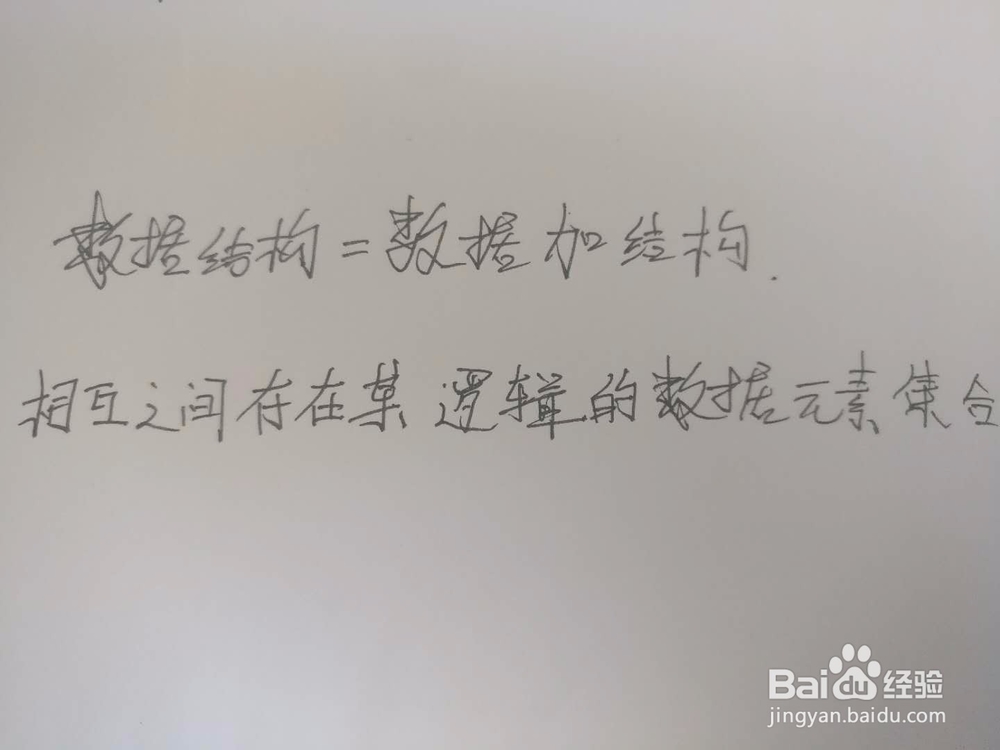 数据结构=数据加结构.
相互之间存在某逻辑的数据元素集合
Baidu经验
jingyan.baidu.com